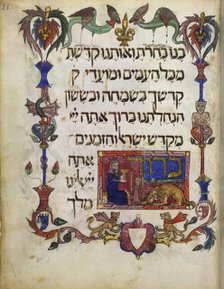 כי בנו בחרת ואותנו קדשת
מכל העמים ומועדי ק
קדשך בשמחה ובששון
הנחלתנו ברוך אתה יי
מקדש ישראל והזמנים
אתה
יי אלהינו
מלך